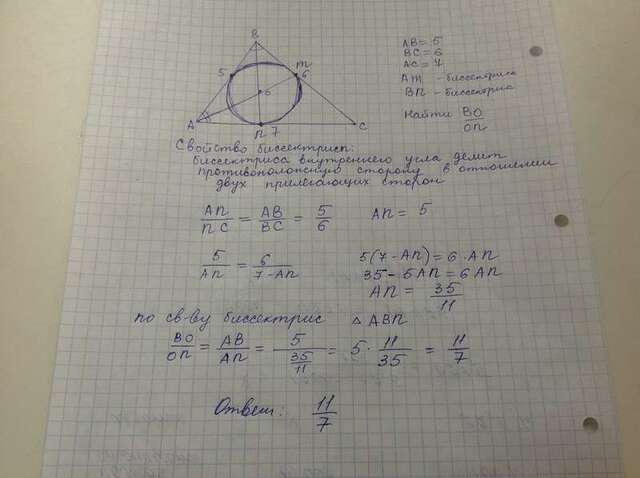 B
5
m
6
б
A
п
7
C
AB= 5
BC= 6
AC= 7
Am - биссектриса
Bп - биссектриса
Найти BO/OП
Свойство биссектрисы:
биссектриса внутреннего угла делит
противоположную сторону в отношении
двух прилегающих сторон
AП/ПC = AB/BC = 5/6
AП= 5
5/AП = 6/7-AП
5(7-AП)=6·AП
35-5AП=6AП
AП= 35/11
по св-ву биссектрис △ABП
BO/OП = AB/AП = 5/(35/11) = 5·11/35 = 11/7
Ответ: 11/7